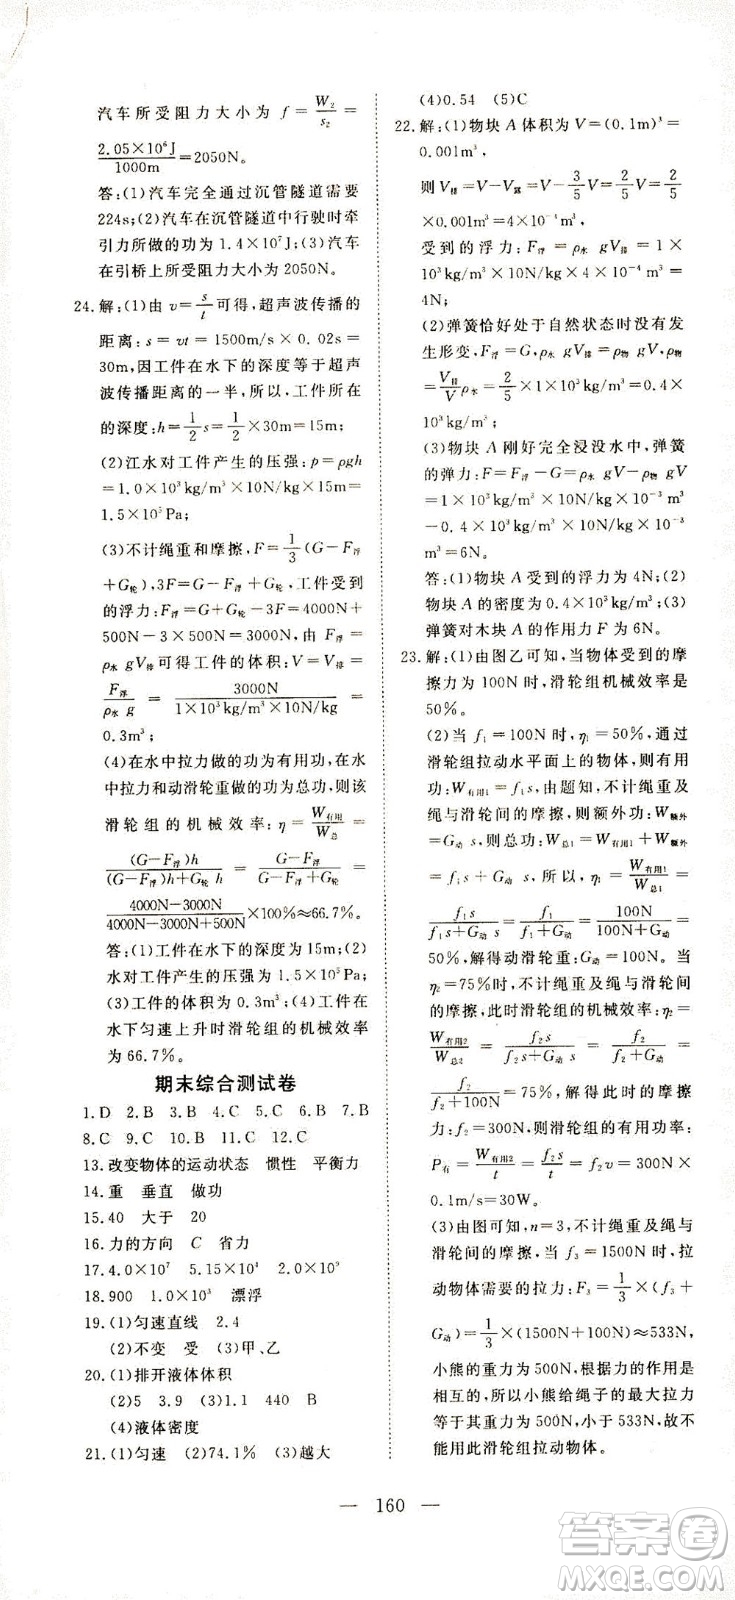 汽车所受阻力大小为 f = W₂/s₂ =
2.05×10⁶J/1000m = 2050N。
答:(1)汽车完全通过沉管隧道需要
224s;(2)汽车在沉管隧道中行驶时牵
引力所做的功为 1.4×10⁷J;(3)汽车
在引桥上所受阻力大小为 2050N。
24.解:(1)由 v = s/t 可得,超声波传播的
距离:s = vt = 1500m/s×0.02s =
30m,因工件在水下的深度等于超声
波传播距离的一半,所以,工件所在
的深度:h = 1/2 s = 1/2×30m = 15m;
(2)江水对工件产生的压强:p = ρgh
= 1.0×10³kg/m³×10N/kg×15m =
1.5×10⁵Pa;
(3)不计绳重和摩擦,F = 1/3(G−F浮
+G轮),3F = G−F浮+G轮;工件受到
的浮力:F浮 = G+G轮−3F = 4000N+
500N−3×500N = 3000N,由 F浮 =
ρ水 gV排可得工件的体积:V = V排 =
F浮/ρ水 g = 3000N/1×10³kg/m³×10N/kg =
0.3m³;
(4)在水中拉力做的功为有用功,在水
中拉力和动滑轮重做的功为总功,则该
滑轮组的机械效率:η = W有用/W总 =
(G−F浮)h/(G−F浮)h+G轮 h = G−F浮/G−F浮+G轮 =
4000N−3000N/4000N−3000N+500N×100%≈66.7%。
答:(1)工件在水下的深度为 15m;(2)
水对工件产生的压强为 1.5×10⁵Pa;
(3)工件的体积为 0.3m³;(4)工件在
水下匀速上升时滑轮组的机械效率
为 66.7%。
期末综合测试卷
1.D 2.B 3.B 4.C 5.C 6.B 7.B
8.C 9.C 10.C 11.C 12.C
13.改变物体的运动状态 惯性 平衡力
14.重 垂直 做功
15.40 大于 20
16.力的方向 C 省力
17.4.0×10⁷ 5.15×10⁴ 2.0×10⁹
18.900 1.0×10³ 漂浮
19.(1)匀速直线 2.4
(2)不变 受 (3)甲、乙
20.(1)排开液体体积
(2)5 3.9 (3)1.1 440 B
(4)液体密度
21.(1)匀速 (2)74.1% (3)越大
(4)0.54 (5)C
22.解:(1)物块 A 体积为 V = (0.1m)³ =
0.001m³,
则 V排 = V−V露 = V−3/5V = 2/5V = 2/5
×0.001m³ = 4×10⁻⁴m³,
受到的浮力:F浮 = ρ水 gV排 = 1×
10³kg/m³×10N/kg×4×10⁻⁴m³ =
4N;
(2)弹簧恰好处于自然状态时没有发
生形变,F浮 = G,ρ水 gV排 = ρ物 gV,ρ物
= V排/V ρ水 = 2/5×1×10³kg/m³ = 0.4×
10³kg/m³;
(3)物块 A 刚好完全浸没水中,弹簧
的弹力:F = F浮−G = ρ水 gV−ρ物 gV =
1×10³kg/m³×10N/kg×1×10⁻³
m³−0.4×10³kg/m³×10N/kg×1×10⁻³
m³ = 6N。
答:(1)物块 A 受到的浮力为 4N;(2)
物块 A 的密度为 0.4×10³kg/m³;(3)
弹簧对木块 A 的作用力 F 为 6N。
23.解:(1)由图乙可知,当物体受到的摩
擦力为 100N 时,滑轮组机械效率是
50%。
(2)当 f₁ = 100N 时,η₁ = 50%,通过
滑轮组拉动水平面上的物体,则有用
功:W有用1 = f₁s,由题知,不计绳重及
绳与滑轮间的摩擦,则额外功:W额外
= G动 s,则总功:W总1 = W有用1+W额外 =
f₁s+G动 s,所以,η₁ = W有用1/W总1 =
f₁s/f₁s+G动 s = f₁/f₁+G动 = 100N/100N+G动 =
50%,解得动滑轮重:G动 = 100N,因
η₂ = 75%时,不计绳重及绳与滑轮间
的摩擦,此时滑轮组的机械效率:η₂ =
W有用2/W总2 = f₂s/f₂s+G动 s = f₂/f₂+G动 =
f₂/f₂+100N = 75%,解得此时的摩擦
力:f₂ = 300N,则滑轮组的有用功率:
P有 = W有用2/t = f₂s/t = f₂v = 300N×
0.1m/s = 30W。
(3)由图可知,n = 3,不计绳重及绳与
滑轮间的摩擦,当 f₃ = 1500N 时,拉
动物体需要的拉力:F₃ = 1/3×(f₃+
G动) = 1/3×(1500N+100N)≈533N,
小熊的重力为 500N,根据力的作用是
相互的,所以小熊给绳子的最大拉力
等于其重力为 500N,小于 533N,故不
能用此滑轮组拉动物体。
— 160 —
答案圈
MXQE.COM